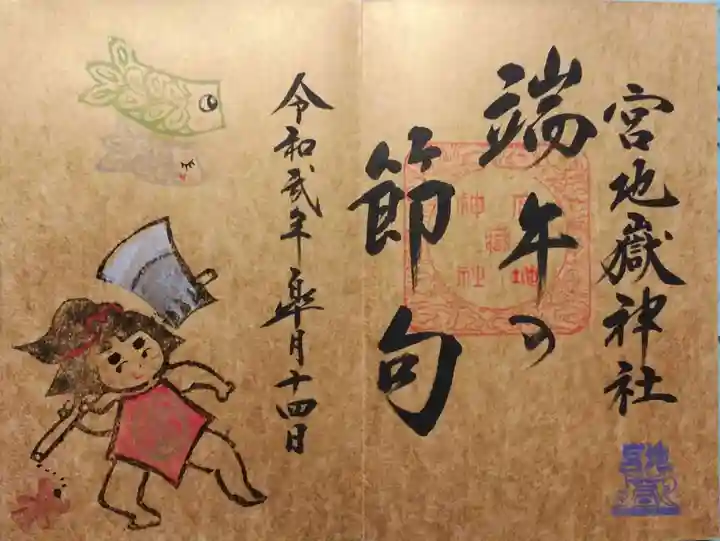 宮地嶽神社
端午の
節句
令和弐年皐月十四日
宮地嶽神社